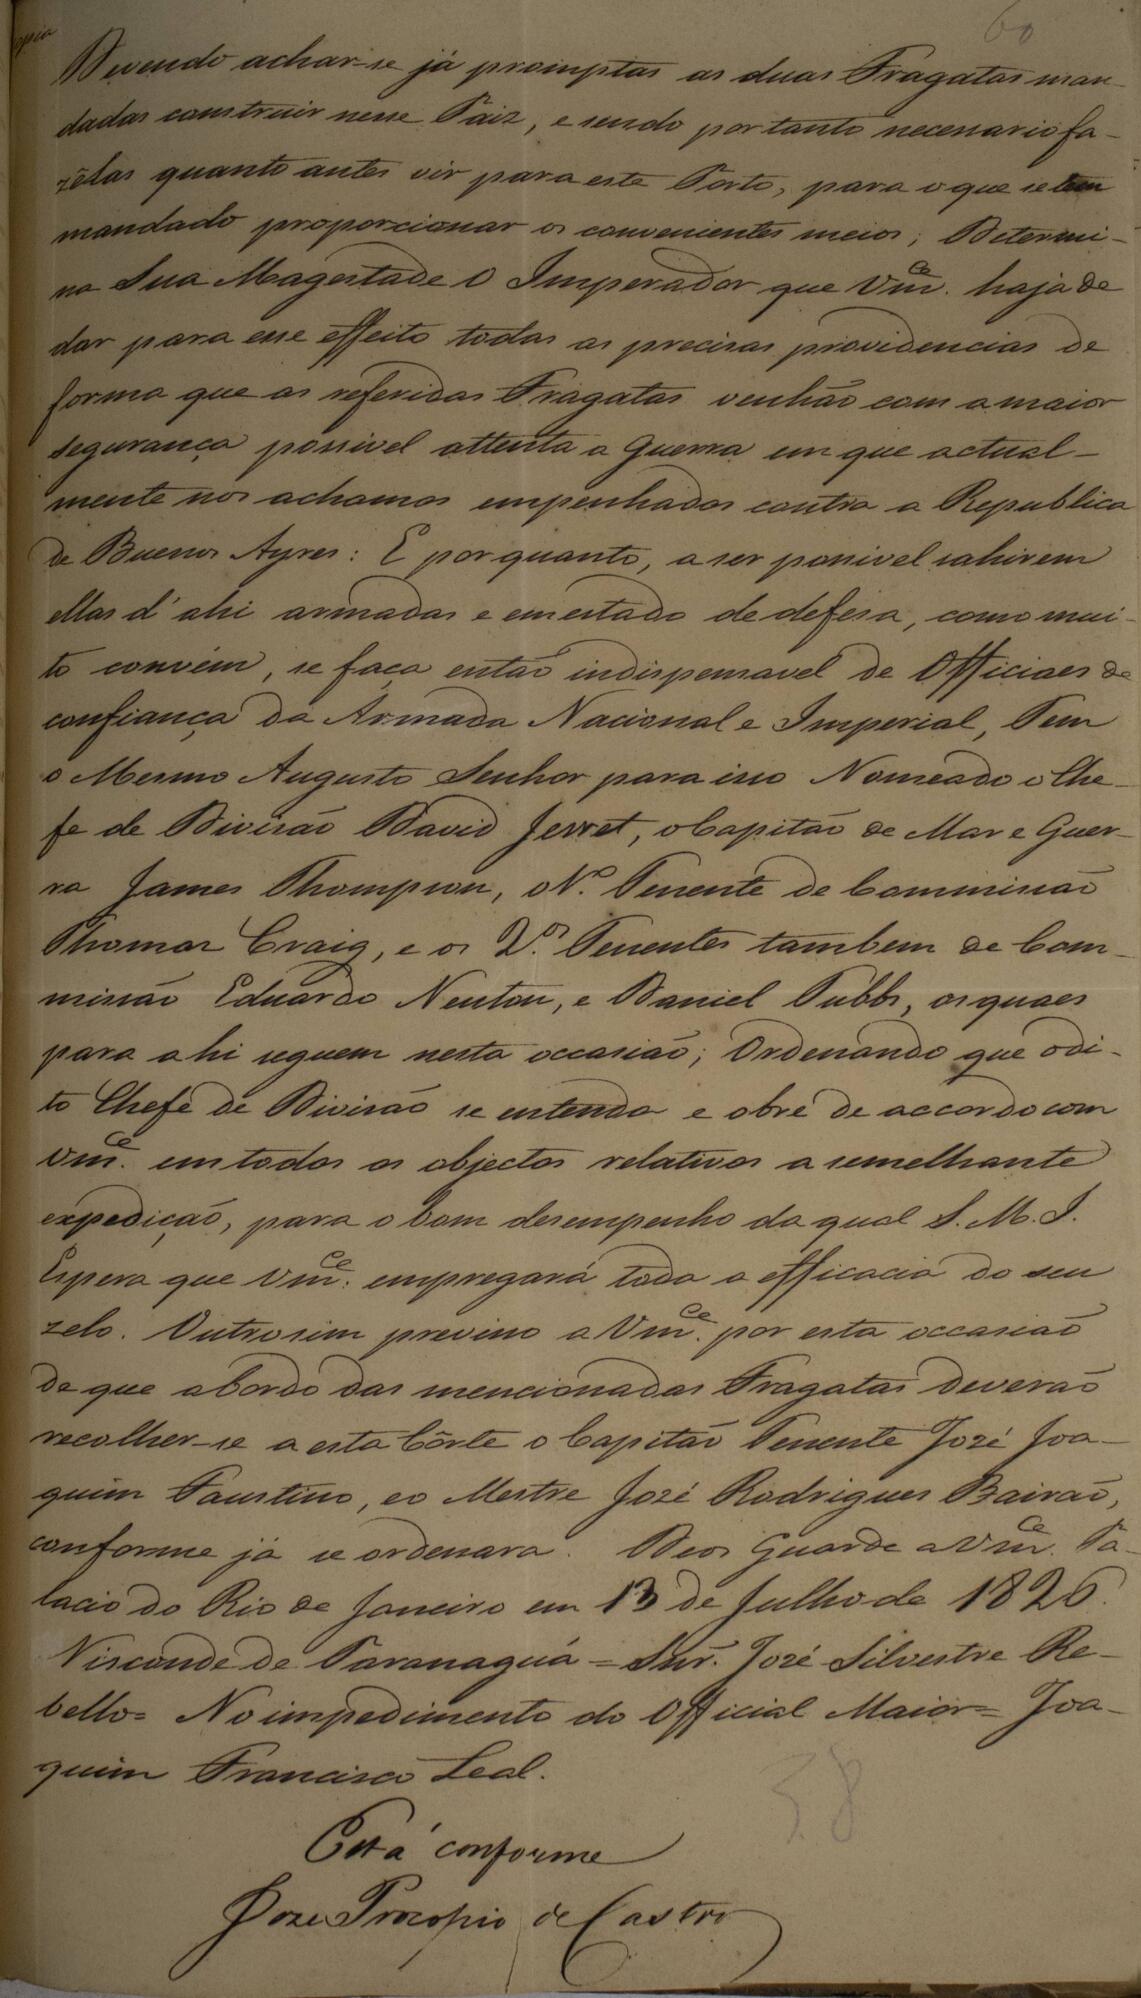 60
Devendo achar-se já promptas as duas Fragatas man-
dadas construir nesse Paiz, e sendo por tanto necessario fa-
zêlas quanto antes vir para este Porto, para o que se tem
mandado proporcionar os convenientes meios; Determi-
na Sua Magestade O Imperador que Vm.ce haja de
dar para esse effeito todas as precisas providencias de
forma que as referidas Fragatas venhão com a maior
segurança possivel attenta a Guerra em que actual-
mente nos achamos empenhados contra a Republica
de Buenos Ayres: E por quanto, a ser possivel sahirem
ellas d'ahi armadas e em estado de defesa, como mui-
to convém, se faça então indispensavel de Officiaes de
confiança da Armada Nacional e Imperial, Tem
o Mesmo Augusto Senhor para isso Nomeado o Che-
fe de Divisão David Jewet, o Capitão de Mar e Guer-
ra James Thompson, o 1.º Tenente de Commissão
Thomas Craig, e os 2.os Tenentes tambem de Com-
missão Eduardo Newton, e Daniel Tubbs, os quaes
para ahi seguem nesta occasião; Ordenando que o di-
to Chefe de Divisão se entenda e obre de accordo com
Vm.ce em todos os objectos relativos a semelhante
expedição, para o bom desempenho da qual S. M. I.
Espera que Vm.ce empregará toda a efficacia do seu
zelo. Outrosim previno a Vm.ce por esta occasião
de que a bordo das mencionadas Fragatas deverão
recolher-se a esta Côrte o Capitão Tenente José Joa-
quim Faustino, e o Mestre José Rodrigues Bairão,
conforme já se ordenara. Deos Guarde a Vm.ce Pa-
lacio do Rio de Janeiro em 13 de Julho de 1826.
Visconde de Paranaguá = Snr. José Silvestre Re-
bello = No impedimento do Official Maior = Joa-
quim Francisco Leal.
58
Está conforme
Joze Procopio de Castro